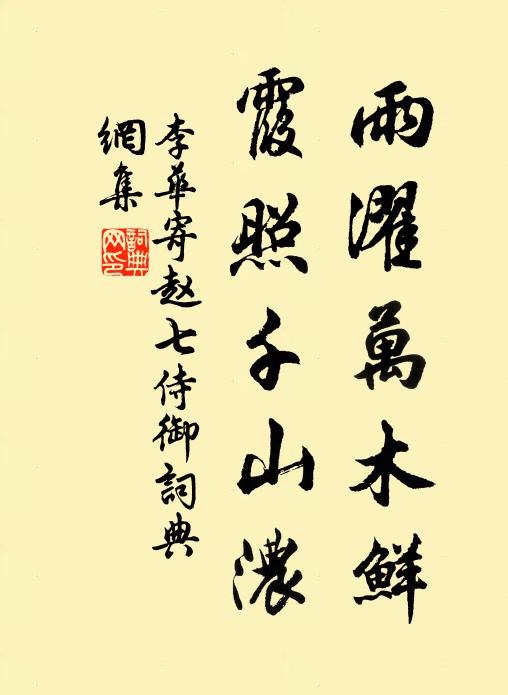 雨濯萬木鮮
霞照千山濃
李華寄赵七侍御詞典
網集
詞典
网印